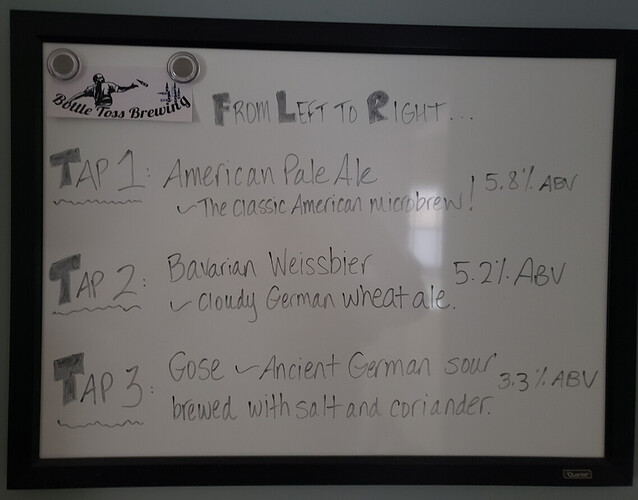 Bottle Toss Brewing
FROM LEFT TO RIGHT...
TAP 1: American Pale Ale
~ The classic American microbrew! 5.8% ABV
TAP 2: Bavarian Weissbier 5.2% ABV
~ cloudy German wheat ale.
TAP 3: Gose ~ Ancient German sour 3.3% ABV
brewed with salt and coriander.
Quartet